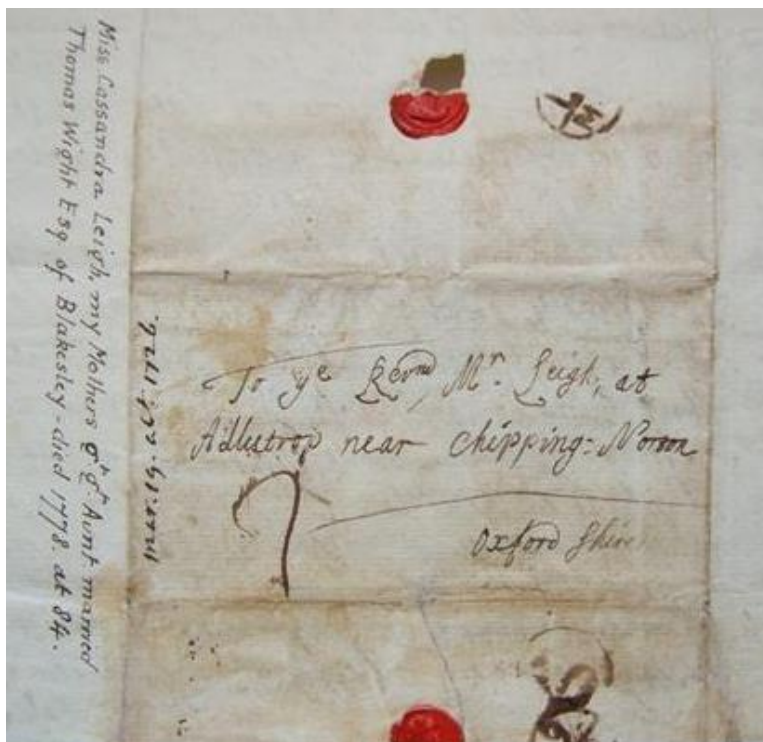 Miss Cassandra Leigh, my Mothers gt gt Aunt married
Thomas Wight Esq of Blakesley - died 1778. at 84.
To ye Revnd Mr. Leigh, at
Adlestrop near Chipping-Norton
Oxford Shire